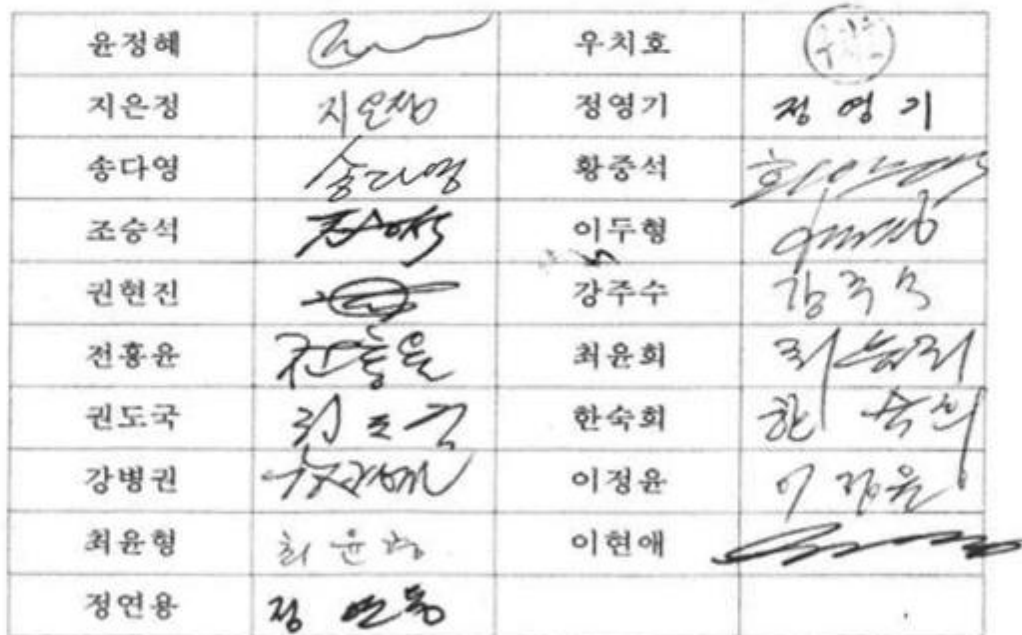 윤정혜 우치호
지은정 지은정 정영기 정영기
송다영 송다영 황중석
조승석 이두형
권현진 강주수 강주수
전홍윤 전홍윤 최윤희
권도국 권도국 한숙희 한숙희
강병권 이정윤 이정윤
최윤형 최윤형 이현애
정연용 정연용